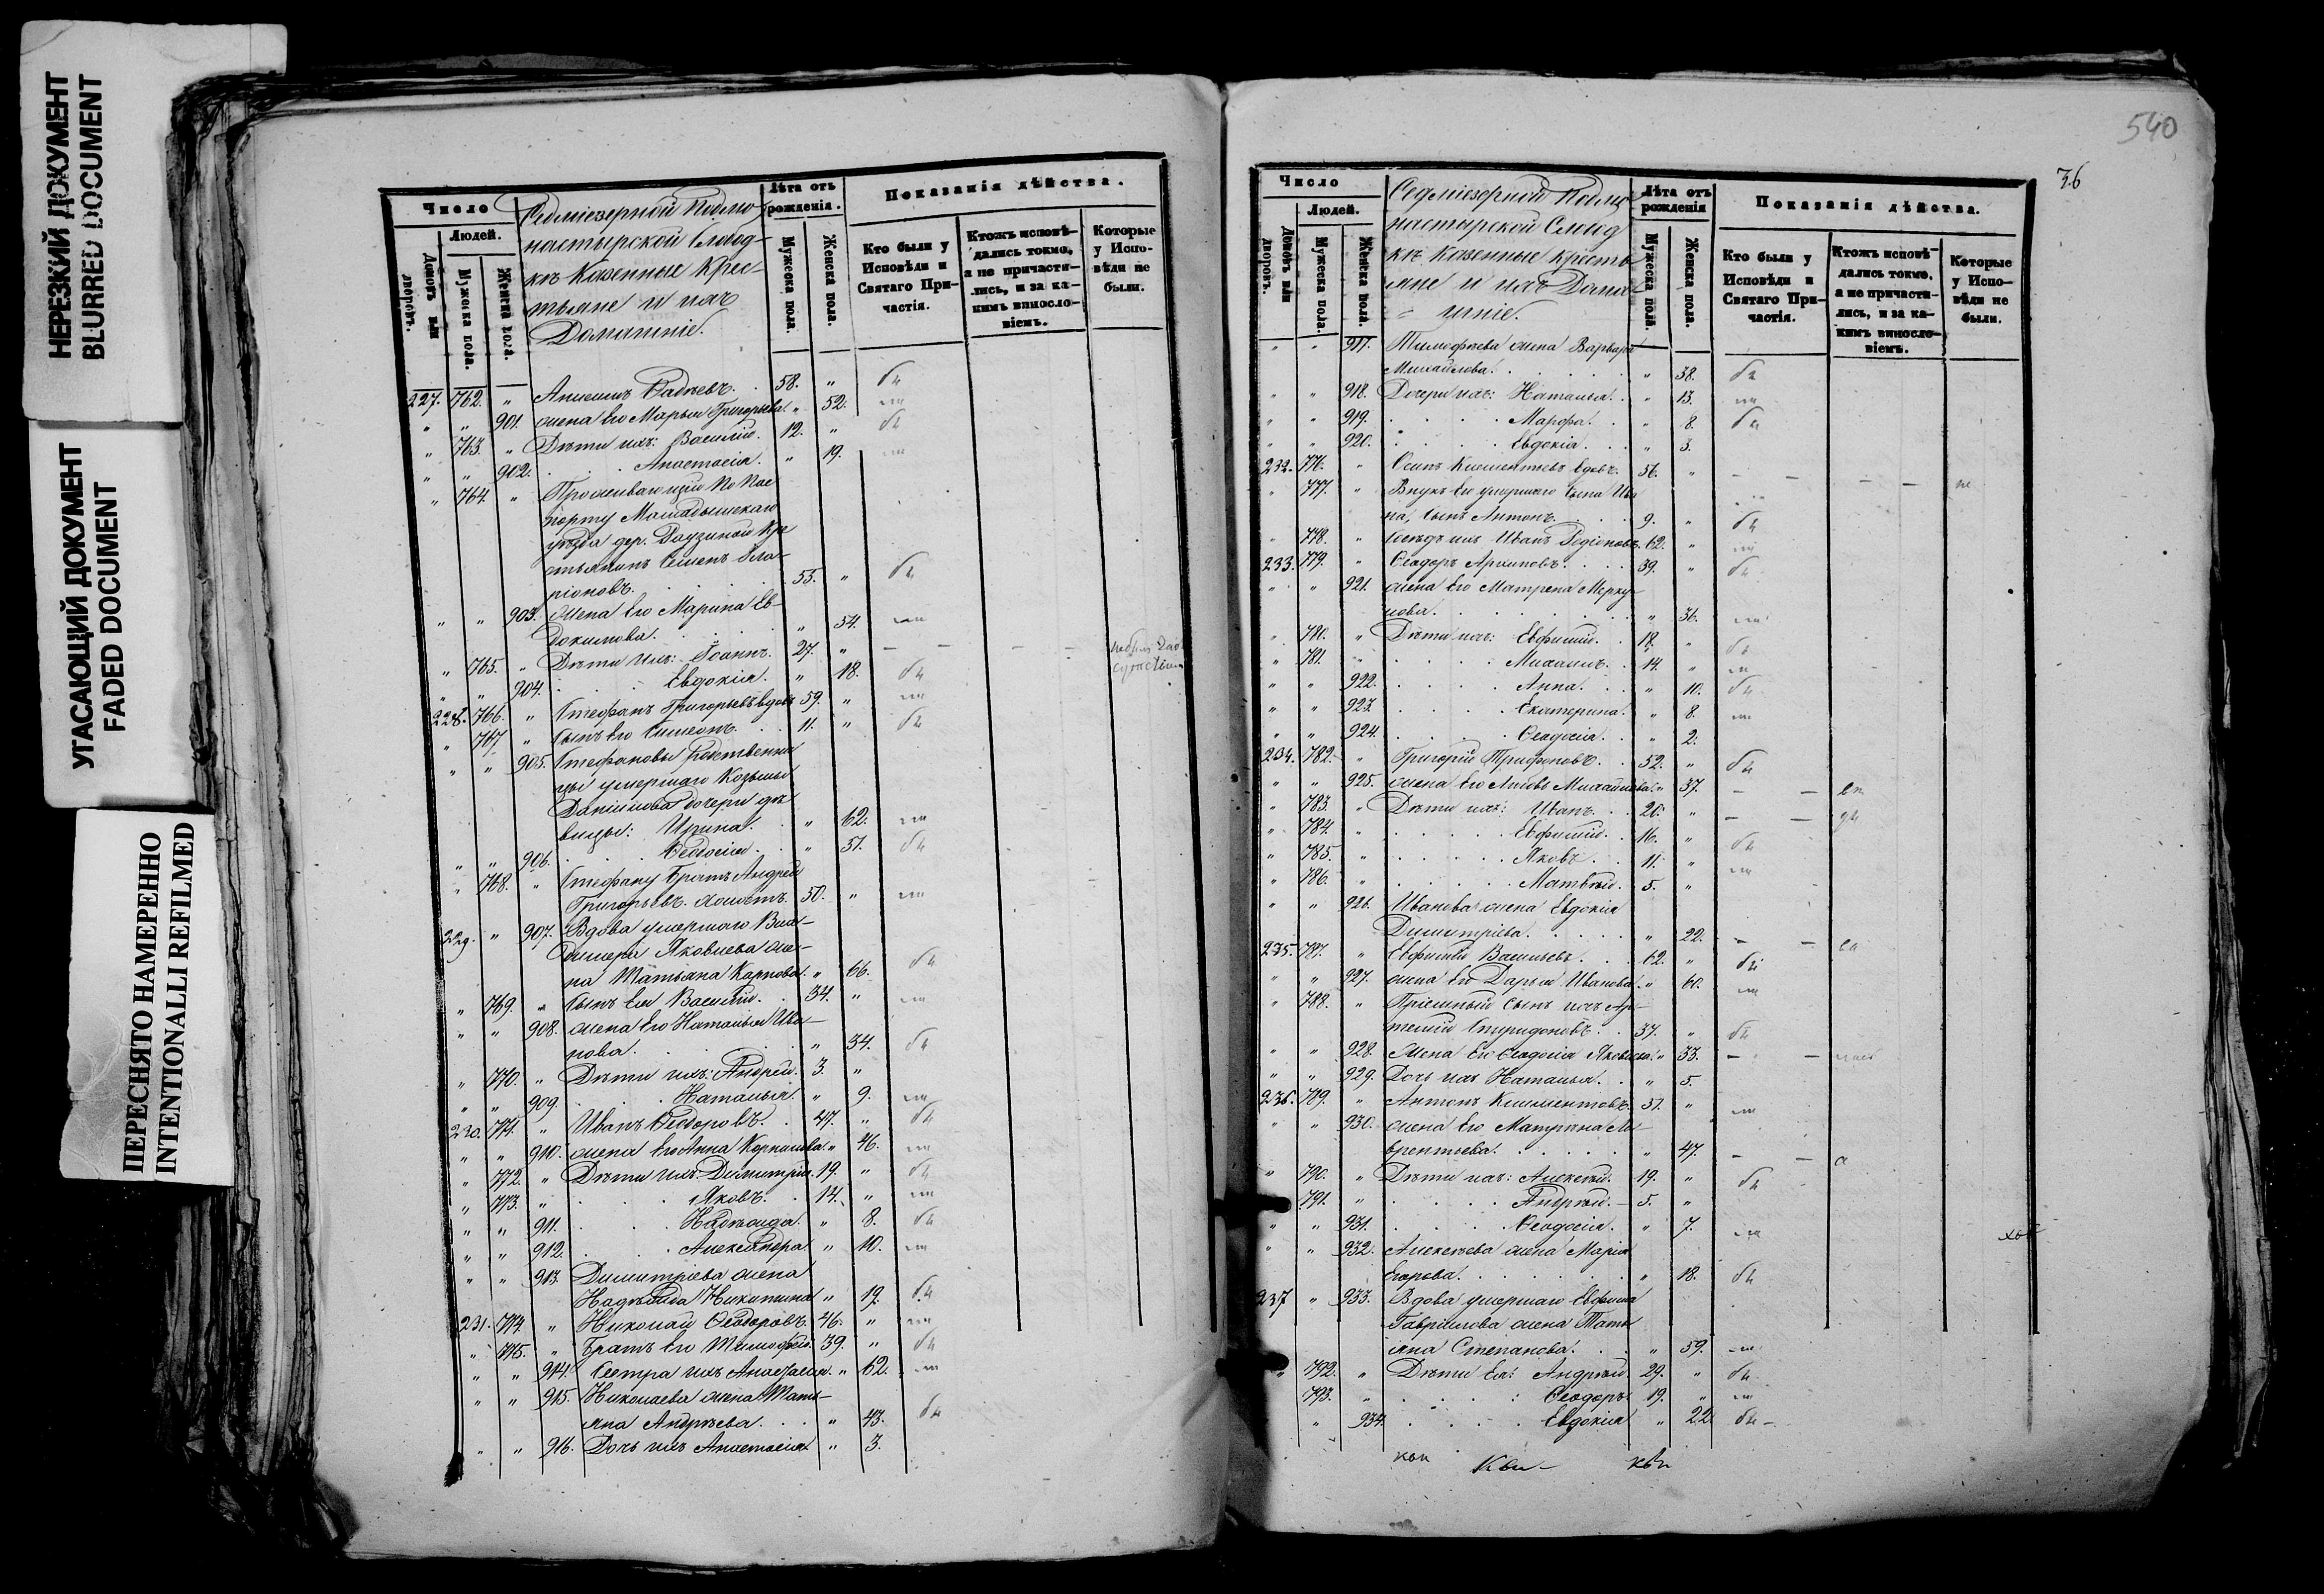 НЕРЕЗКИЙ ДОКУМЕНТ
BLURRED DOCUMENT
УГАСАЮЩИЙ ДОКУМЕНТ
FADED DOCUMENT
ПЕРЕСНЯТО НАМЕРЕННО
INTENTIONALLI REFILMED
Число
Людей.
Домовъ или дворовъ.
Мужеска пола.
Женска пола.
Седміезерной Подмо-
настырской Слобод-
къ Казенные Крес-
тьяне и ихъ
Домашніе.
Лѣта отъ рожденія.
Мужеска пола.
Женска пола.
Показанія дѣйства.
Кто были у Исповѣди и Святаго При-частія.
Ктожъ исповѣ-дались токмо, а не причасти-лись, и за ка-кимъ виносло-віемъ.
Которые у Испо-вѣди не были.
227. 762. " 58. "
" " 901. жена его Марья Григорьева. " 52.
" 763. " Дѣти ихъ: Василій. 12. "
" " 902. Анастасія. " 19.
" 764. " Проживающій по пас
порту Мамадышскаго
уѣзда дер. кре
стьянинъ Семенъ Ила-
ріоновъ. 53. "
" " 903. жена его Марина Ев-
докимова. " 54.
" 765. " Дѣти ихъ: Іоаннъ. 27. "
" " 904. Евдокія. " 18.
228. 766. " Стефанъ Григорьевъ вдовъ 59. "
" 767. " Сынъ его Симеонъ. 11. "
" " 905. Стефановы родственни
цы умершаго Козьмы
Данилова дочери дѣ
вицы: Ирина. " 62.
" " 906. Феодосія. " 51.
" 768. " Стефану братъ Андрей
Григорьевъ. холостъ. 50. "
229. " 907. Вдова умершаго Вла-
димера Яковлева же-
на Татьяна Карпова. " 66.
" 769. " Сынъ ея Василій. 34. "
" " 908. жена его Наталья Ива-
нова. " 34.
" 770. " Дѣти ихъ: Андрей. 3. "
" " 909. Наталья. " 9.
230. 771. " Иванъ Феодоровъ. 47. "
" " 910. жена его Анна Корнилова " 46.
" 772. " Дѣти ихъ: Димитрій 19. "
" 773. " Яковъ. 14. "
" " 911. Надежда. " 8.
" " 912. Александра. " 10.
" " 913. Димитріева жена
Надежда Никитина " 19.
231. 774. " Николай Феодоровъ. 46. "
" 775. " Братъ его Тимофей. 39. "
" " 914. Сестра ихъ Анастасія. " 62.
" " 915. Николаева жена Тать-
яна Андреева. " 43.
" " 916. Дочь ихъ Анастасія. " 3.
540
36
Число
Людей.
Домовъ или дворовъ.
Мужеска пола.
Женска пола.
Седміезерной Подмо
настырской Слобод
къ Казенные кресть
яне и ихъ Дома
шніе.
Лѣта отъ рожденія
Мужеска пола.
Женска пола.
Показанія дѣйства.
Кто были у Исповѣди и Святаго При-частія.
Ктожъ исповѣ дались токмо, а не причасти-лись, и за ка-кимъ виносло-віемъ.
Которые у Испо-вѣди не были.
" " 917. Тимофеева жена Варвара
Михайлова. " 38.
" " 918. Дочери ихъ: Наталья. " 13.
" " 919. Марфа. " 8.
" " 920. Евдокія. " 3.
232. 776. " Осипъ Климентьевъ вдовъ. 56. "
" 777. " Внукъ его умершаго сына Ива
на, сынъ Антонъ. 9. "
" 778. " Сосѣдъ ихъ Иванъ Родіоновъ. 62. "
233. 779. " Феодоръ Архиповъ. 39. "
" " 921. жена его Матрена Мерку-
лова. " 36.
" 780. " Дѣти ихъ: Евфимій. 18. "
" 781. " Михаилъ. 14. "
" " 922. Анна. " 10.
" " 923. Екатерина. " 8.
" " 924. Феодосія. " 2.
234. 782. " Григорій Трифоновъ. 52. "
" " 925. жена его Любовь Михайлова. " 37.
" 783. " Дѣти ихъ: Иванъ. 20. "
" 784. " Евфимій. 16. "
" 785. " Яковъ. 11. "
" 786. " Матвѣй. 5. "
" " 926. Иванова жена Евдокія
Димитріева. " 22.
235. 787. " Евфимій Васильевъ. 62. "
" " 927. жена его Дарья Иванова. " 60.
" 788. " Пріемный сынъ ихъ Ар-
темій Спиридоновъ. 37. "
" " 928. Жена его Феодосія Яковлева. " 33.
" " 929. Дочь ихъ Наталья. " 5.
236. 789. " Антонъ Климентовъ. 51. "
" " 930. жена его Матрена Ла-
врентьева. " 47.
" 790. " Дѣти ихъ: Алексѣй. 19. "
" 791. " Андрей. 5. "
" " 931. Феодосія. " 7.
" " 932. Алексѣева жена Марія
Егорова. " 18.
237 " 933. Вдова умершаго Евфима
Гаврилова жена Тать
яна Степанова. " 59.
" 792. " Дѣти ея: Андрей. 29. "
793. " Феодоръ. 19. "
" 934. Евдокія " 22.